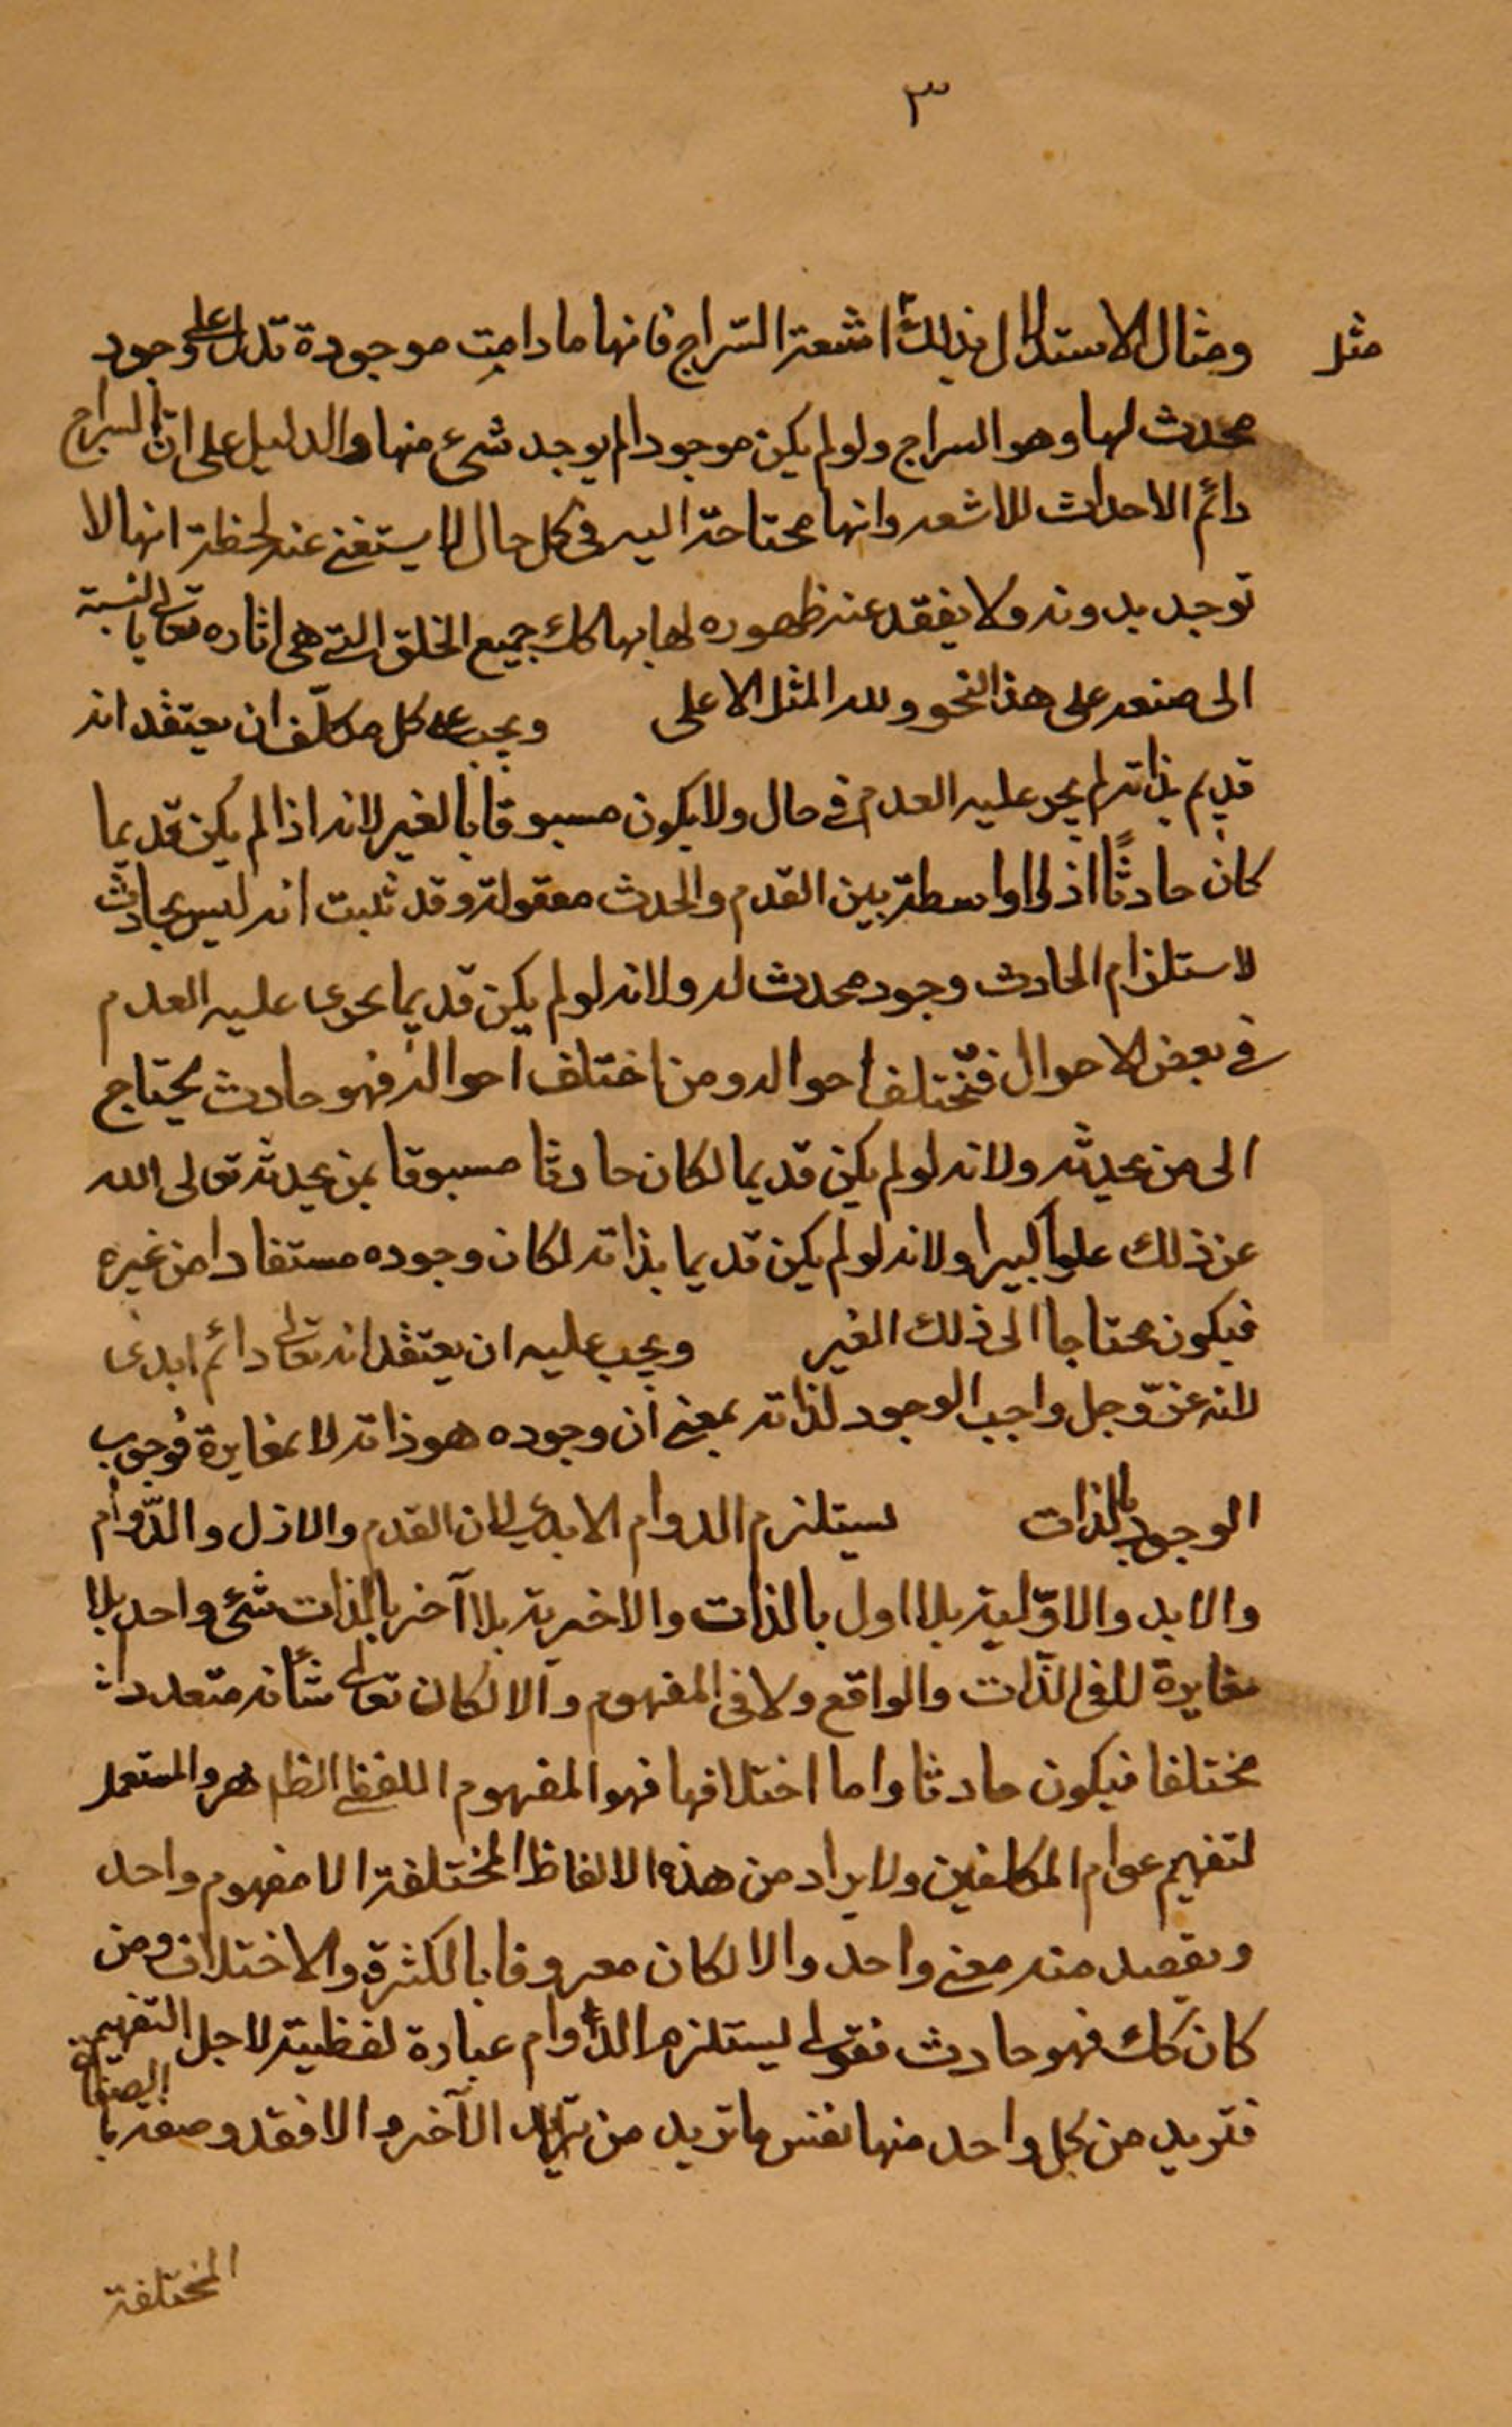 ٣
مثل
ومثال الاستدلال بذلك اشعة السّراج فانها ما دامت موجودة تدل على وجود
محدث لها وهو السراج ولو لم يكن موجودا لم يوجد شيء منها والدليل على ان السراج
دائم الاحداث للاشعه وانها محتاجة اليه فى كل حال لا يستغنى عنه لحظة انها لا
توجد بدونه ولا يفقد عند ظهوره لها بها كك جميع الخلق التى هى اثاره تعالى بالنسبة
الى صنعه على هذا النحو ولله المثل الاعلى ويجب على كل مكلّف ان يعتقد انه
قديم بذاته لم يجر عليه العدم فى حال ولا يكون مسبوقا بالغير لانه اذا لم يكن قديما
كان حادثًا اذ لا واسطة بين القدم والحدث معقولة وقد ثبت انه ليس بحادث
لاستلزام الحادث وجود محدث له ولانه لو لم يكن قديما يجرى عليه العدم
فى بعض الاحوال فتختلف احواله ومن اختلف احواله فهو حادث يحتاج
الى من يحدثه ولانه لو لم يكن قديما لكان حادثا مسبوقا بمن يحدثه تعالى الله
عن ذلك علوا كبيرا ولانه لو لم يكن قديما بذاته لكان وجوده مستفادا من غيره
فيكون محتاجا الى ذلك الغير ويجب عليه ان يعتقد انه تعالى دائم ابدى
لانه عزّ وجل واجب الوجود لذاته بمعنى ان وجوده هو ذاته لا بمغايرة فوجوب
الوجود بالذات يستلزم الدوام الابدى لان القدم والازل والدّوام
والابد والاوّلية بلا اول بالذات والاخرية بلا آخر بالذات شئ واحد بلا
مغايرة لا فى الذّات والواقع ولا فى المفهوم والا لكان تعالى شانه متعددا
مختلفا فيكون حادثا واما اختلافها فهو المفهوم اللفظى الظاهر والمستعمل
لتفهيم عوام المكلفين ولا يراد من هذه الالفاظ المختلفة الا مفهوم واحد
ويقصد منه معنى واحد والا لكان معروفا بالكثرة والاختلاف ومن
كان كك فهو حادث فقولى يستلزم الدّوام عبارة لفظية لاجل التفهيم
فتريد من كل واحد منها نفس ما تريد من الآخر والا فقد وصفته بالصفات
المختلفة